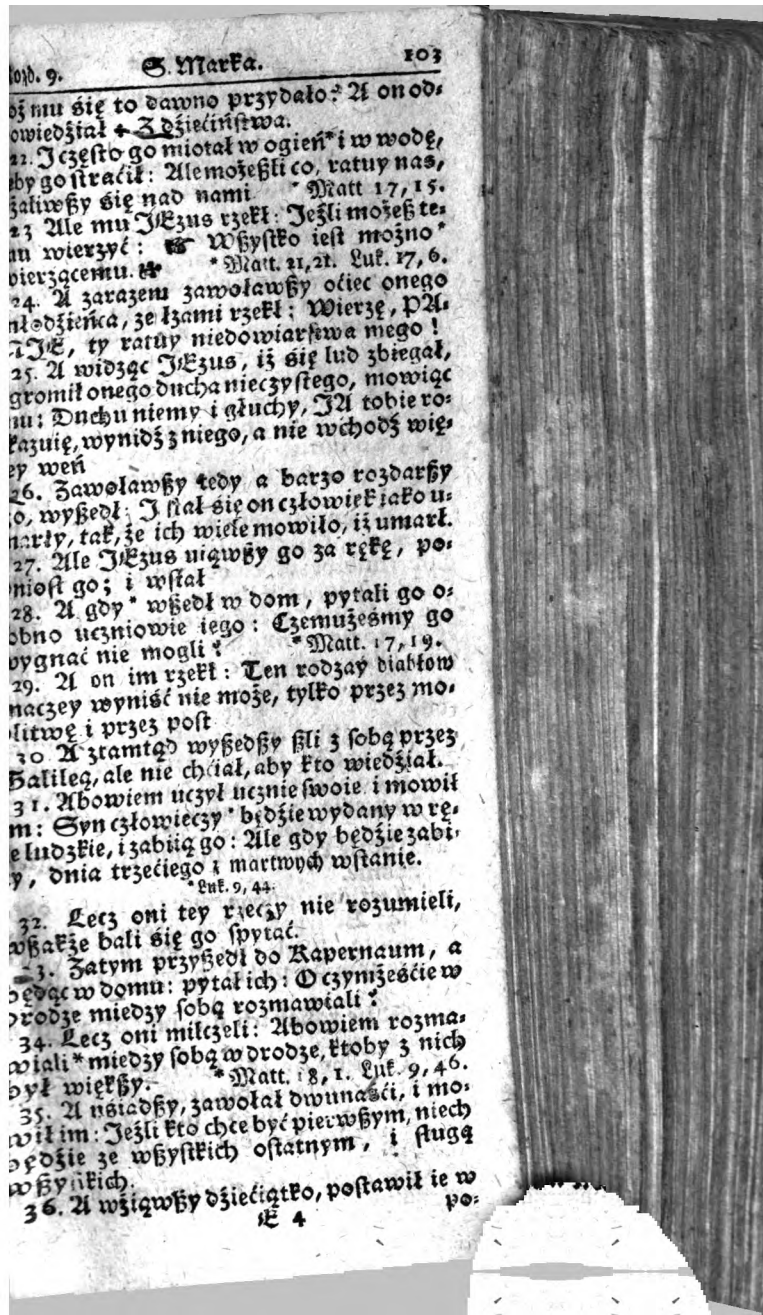 ozd. 9. S. Marka. 103
oż mu się to dawno przydało? A on od⸗
owiedźiał ✦ Z dźiećińſtwa.
22. I często go miotał w ogień* i w wodę,
by go ſtraćił: Ale możeßli co, ratuy nas,
żaliwßy śię nad nami *Matt 17, 15.
23 Ale mu JEzus rzekł: Jeźli możeß te⸗
u wierzyć: ☛ Wßyſtko ieſt możno*
ierzącemu. *Matt. 21, 21. Luk. 17, 6.
24. A zarazem zawoławßy oćiec onego
młodźieńca, ze łzami rzekł: Wierzę, PA⸗
NIE, ty ratuy niedowiarſtwa mego!
25. A widząc JEzus, iż śię lud zbiegał,
gromił onego ducha nieczyſtego, mowiąc
mu: Duchu niemy i głuchy, JA tobie ro⸗
kazuię, wynidź z niego, a nie wchodź wię⸗
ey weń
26. Zawoławßy tedy a barzo rozdarßy
o, wyßedł; I ſtał śię on człowiek jako u⸗
marły, tak, że ich wiele mowiło, iż umarł.
27. Ale JEzus uiąwßy go za rękę, po⸗
nioſł go; i wſtał
28. A gdy* wßedł w dom, pytali go o⸗
obno uczniowie iego: Czemużeśmy go
wygnać nie mogli? *Matt. 17, 19.
29. A on im rzekł: Ten rodzay diabłow
naczey wyniść nie może, tylko przez mo⸗
litwę i przez poſt
30 A ztamtąd wyßedßy ßli z ſobą przez
Galileą, ale nie chćiał, aby kto wiedźiał.
31. Abowiem uczył ucznie ſwoie i mowił
m: Syn człowieczy* będźie wydany w rę⸗
e ludzkie, i zabiią go: Ale gdy będźie zabi⸗
y, dnia trzećiego z martwych wſtanie.
*Luk. 9, 44.
32. Lecz oni tey rzeczy nie rozumieli,
wßakże bali śię go ſpytać.
3. Zatym przyßedł do Kapernaum, a
będąc w domu: pytał ich: O czymżeśćie w
drodze miedzy ſobą rozmawiali?
34. Lecz oni milczeli: Abowiem rozma⸗
wiali* miedzy ſobą w drodze, ktoby z nich
był więkßy. *Matt. 18, 1. Luk. 9, 46.
35. A uśiadßy, zawołał dwunaśći, i mo⸗
wił im: Jeźli kto chce być pierwßym, niech
będźie ze wßyſtkich oſtatnym, i ſługą
wßyſtkich.
36. A wźiąwßy dźiećiątko, poſtawił ie w
E 4 po⸗